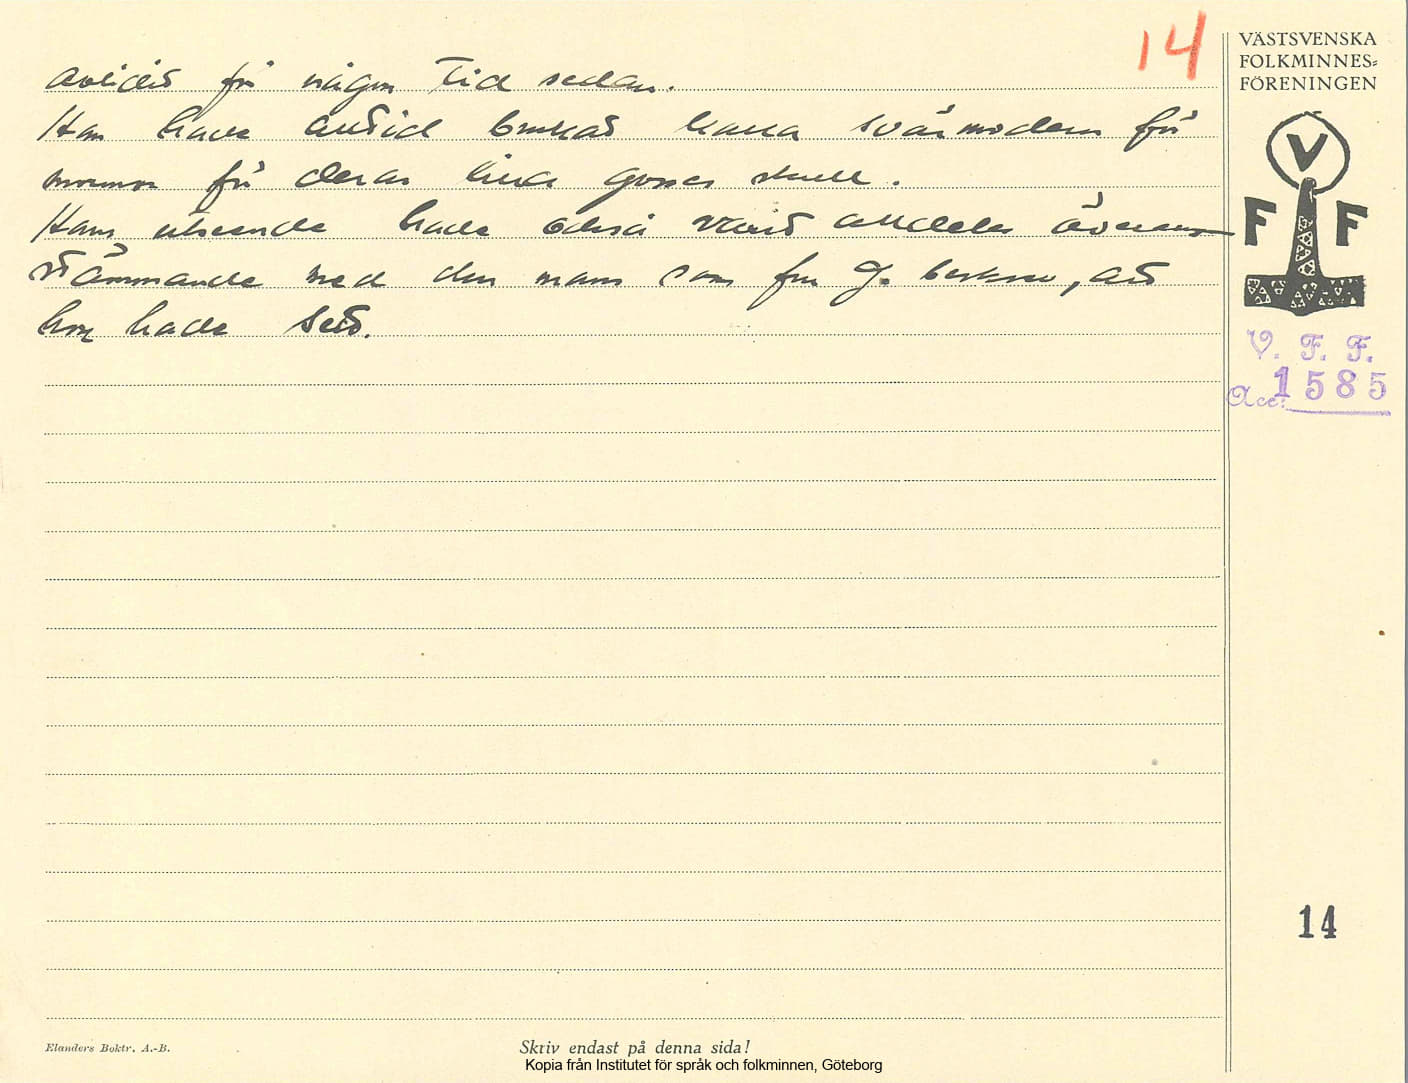 14
VÄSTSVENSKA
FOLKMINNES=
FÖRENINGEN
avlidit för någon tid sedan.
Han hade alltid brukat kalla svärmodern för
mormor för deras lilla gosses skull.
Hans utseende hade också varit alldeles överens-
stämmande med den mans som fru J. beskrev, att
hon hade sett.
V
F F
V. F. F.
Acc: 1585
14
Elanders Boktr. A.-B.
Skriv endast på denna sida!
Kopia från Institutet för språk och folkminnen, Göteborg